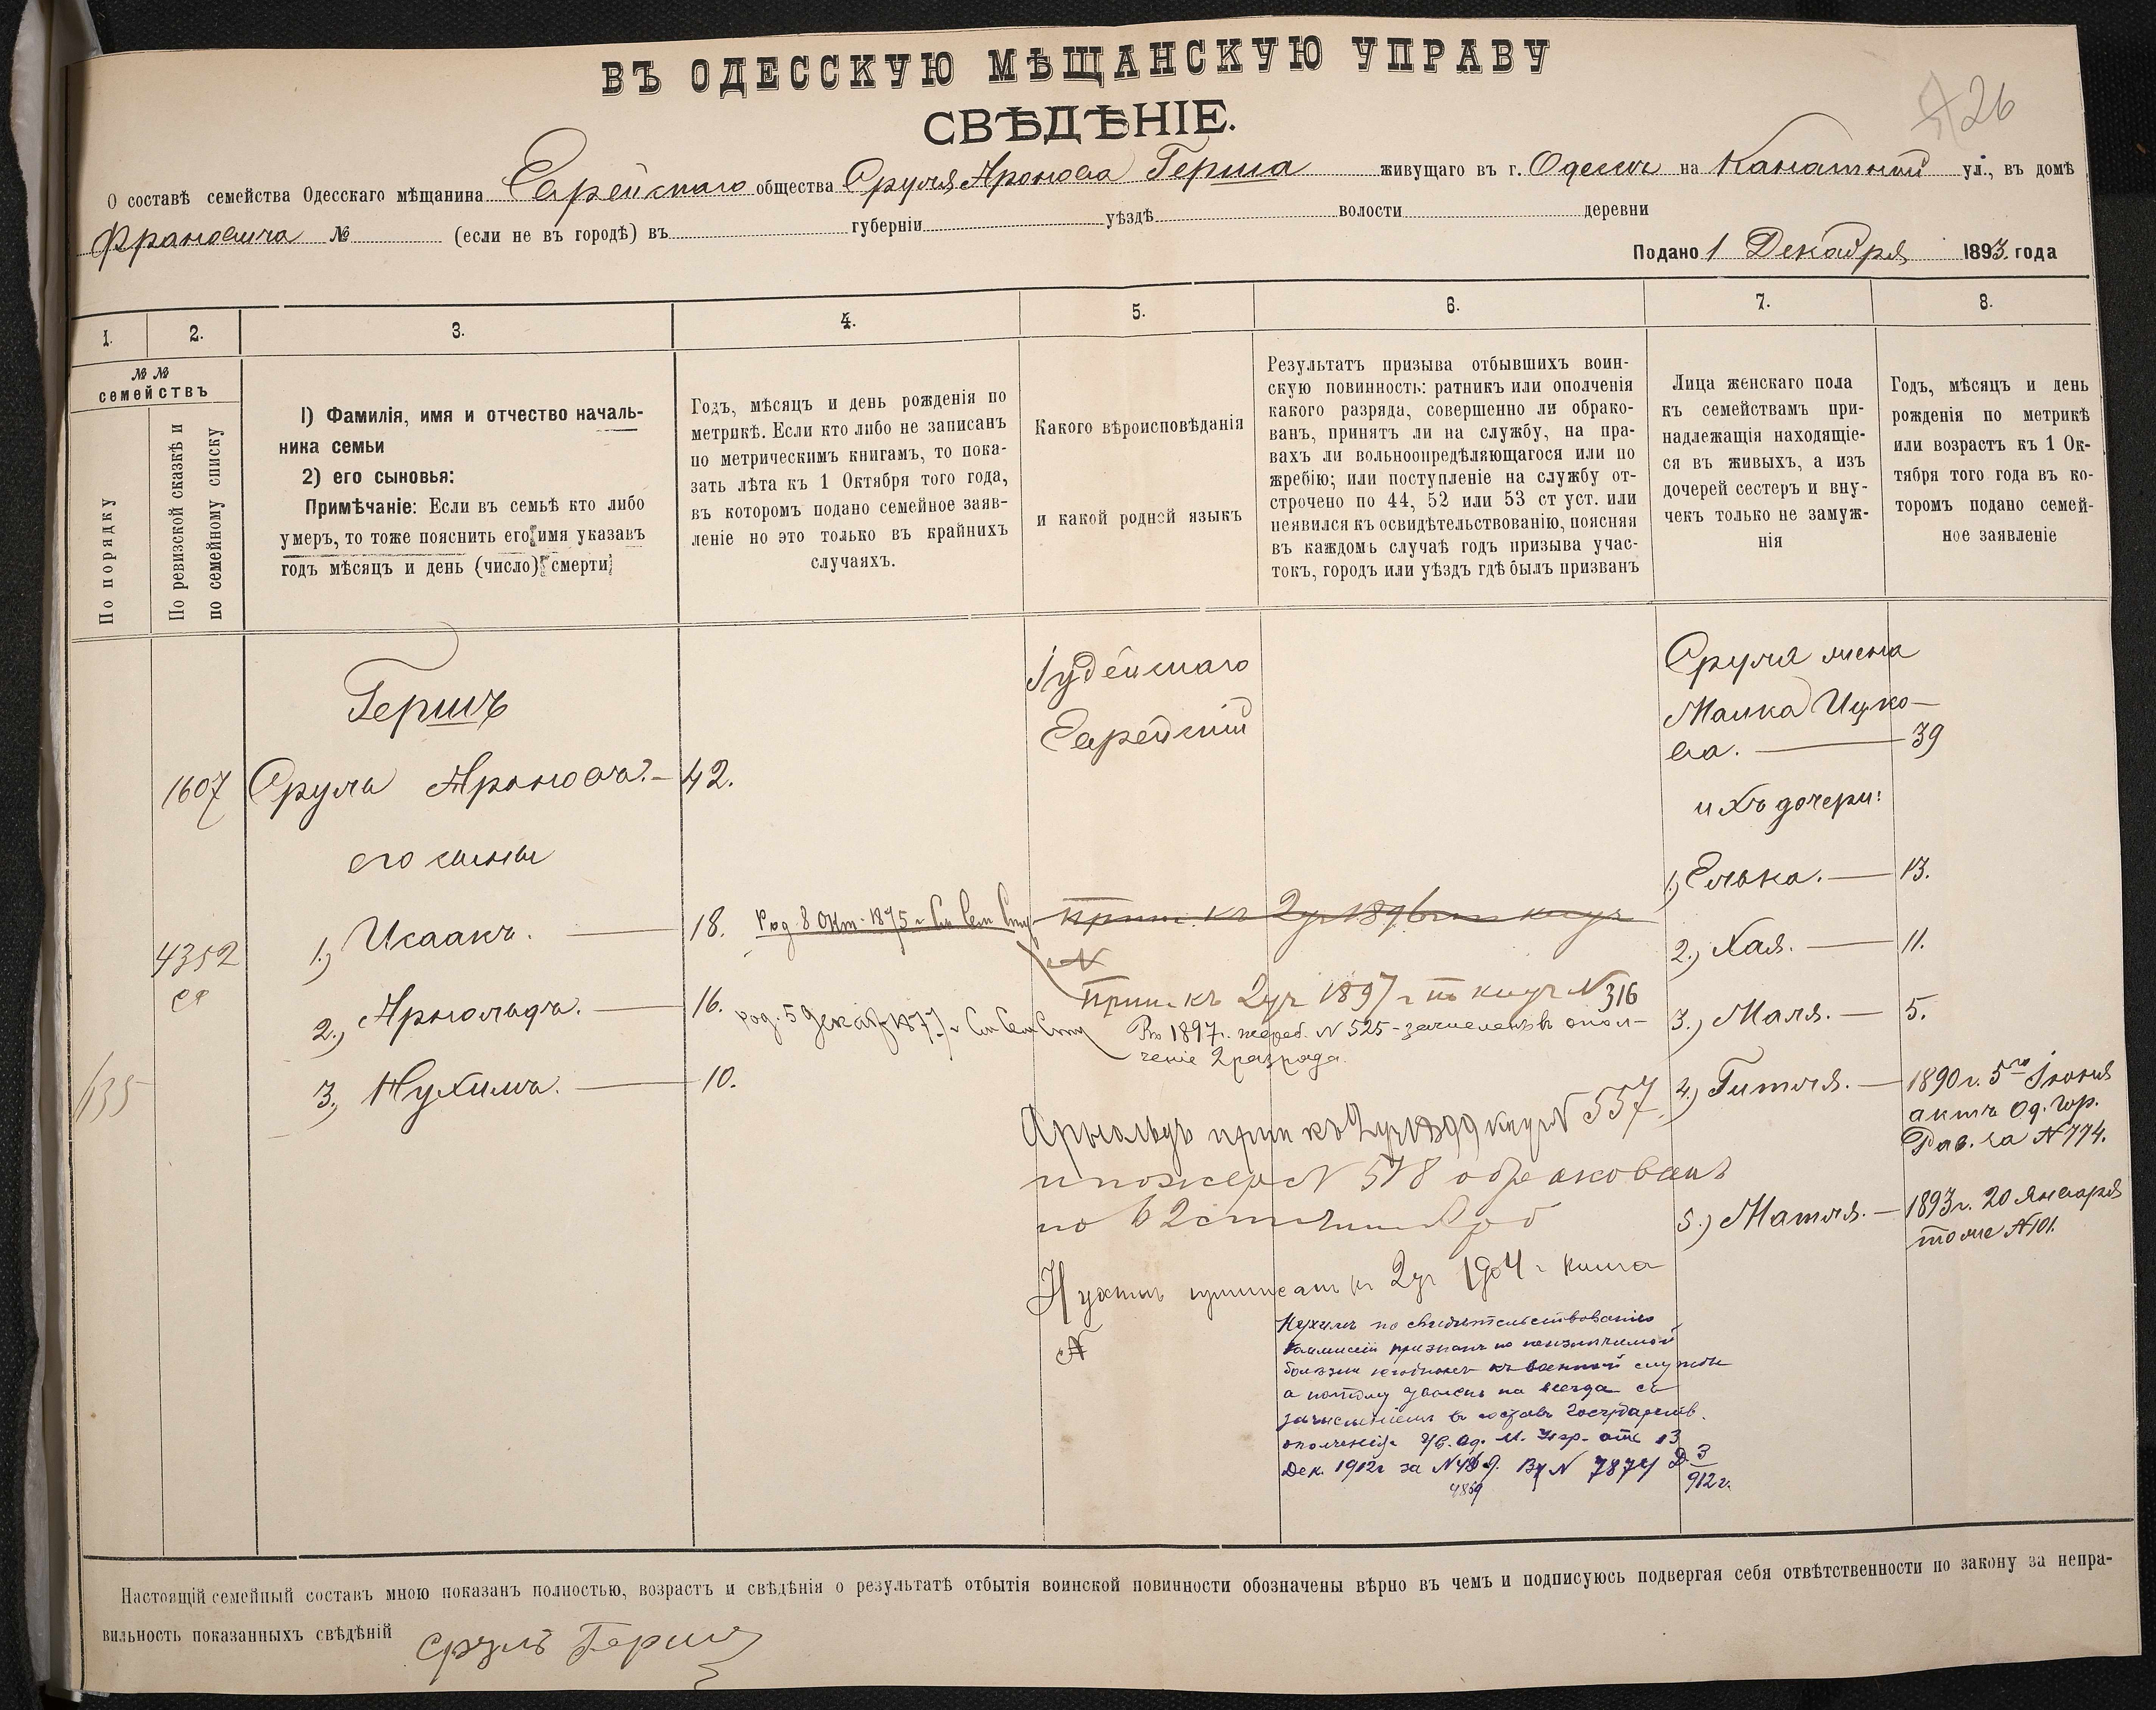 ВЪ ОДЕССКУЮ МѢЩАНСКУЮ УПРАВУ
СВѢДѢНІЕ.
26
О составѣ семейства Одесскаго мѣщанина Еврейскаго общества Сруля Аронова Герша живущаго въ г. Одессѣ на Канатной ул., въ домѣ
Франовича № (если не въ городѣ) въ губерніи уѣздѣ волости деревни
Подано 1 Декабря 1893. года
1.
2.
3.
4.
5.
6.
7.
8.
№ №
семействъ
По порядку
По ревизской сказкѣ и
по семейному списку
1) Фамилія, имя и отчество началь-
ника семьи
2) его сыновья:
Примѣчаніе: Если въ семьѣ кто либо
умеръ, то тоже пояснить его имя указавъ
годъ мѣсяцъ и день (число) смерти
Годъ, мѣсяцъ и день рожденія по
метрикѣ. Если кто либо не записанъ
по метрическимъ книгамъ, то пока-
зать лѣта къ 1 Октября того года,
въ которомъ подано семейное заяв-
леніе но это только въ крайнихъ
случаяхъ.
Какого вѣроисповѣданія
и какой родной языкъ
Результатъ призыва отбывшихъ воин-
скую повинность: ратникъ или ополченія
какого разряда, совершенно ли обрако-
ванъ, принятъ ли на службу, на пра-
вахъ ли вольноопредѣляющагося или по
жребію; или поступленіе на службу от-
строчено по 44, 52 или 53 ст уст. или
неявился къ освидѣтельствованію, поясняя
въ каждомъ случаѣ годъ призыва учас-
токъ, городъ или уѣздъ гдѣ былъ призванъ
Лица женскаго пола
къ семействамъ при-
надлежащія находящіе-
ся въ живыхъ, а изъ
дочерей сестеръ и вну-
чекъ только не замуж-
нія
Годъ, мѣсяцъ и день
рожденія по метрикѣ
или возрастъ къ 1 Ок-
тября того года въ ко-
торомъ подано семей-
ное заявленіе
Гершъ
1607 Сруль Ароновъ. — 42.
его сыны
1.) Исаакъ. — 18. Род. 8 Окт. 1875 г. См Сем Спис
4352
2.) Арнольдъ. — 16. род. 5 декабр 1877 г. См Сем Спис
135
3.) Нухимъ. — 10.
Іудейскаго
Еврейскій
Прип. къ 2 уч 1896 г по книгѣ
№
Прип. къ 2 уч 1897 г по книгѣ № 316
Въ 1897 г. жереб. № 525 - зачисленъ въ опол-
ченіе 2 разряда.
Арнольдъ прип къ 2 уч 1899 книги № 557.
и по жер № 578 обракованъ
по 62 ст
Нухимъ приписанъ къ 2 уч 1904 г книга
№
Нухимъ по свидѣтельствованію
Коммисіи признанъ по неизлечимой
болѣзни негоднымъ къ военной службѣ
а потому уволенъ на всегда съ
зачисленіемъ въ составъ Государств.
ополченія Ув. Од. М. Упр. отъ 13
Дек. 1912 г за № 4869. Вх № 7874 Д. 3
4869
912 г.
Сруля жена
Малка Ицко-
ва. — 39
ихъ дочери:
1.) Елька. — 13.
2.) Хая. — 11.
3.) Маля. — 5.
4.) Гитля. — 1890 г. 5го Іюня
актъ Од. Гор.
Рав. за № 774.
5.) Матля. — 1893 г. 20 Января
тоже № 101.
Настоящій семейный составъ мною показанъ полностью, возрастъ и свѣдѣнія о результатѣ отбытія воинской повинности обозначены вѣрно въ чемъ и подписуюсь подвергая себя отвѣтственности по закону за непра-
вильность показанныхъ свѣдѣній Сруль Герш